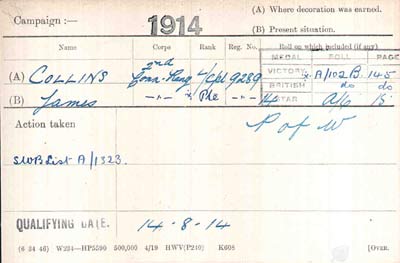 (A) Where decoration was earned.
Campaign :— 1914
(B) Present situation.
Name Corps Rank Reg. No. Roll on which included (if any)
MEDAL ROLL PAGE
(A) COLLINS 2nd Conn. Rang. L/Cpl 9289 VICTORY A/102 B. 145
BRITISH do do
(B) James —"— x Pte —"— 14 STAR A/6 15
P of W
Action taken
SWB List A/1323.
QUALIFYING DATE. 14-8-14
(6 34 46) W234—HP5590 500,000 4/19 HWV(P240) K608 [OVER.